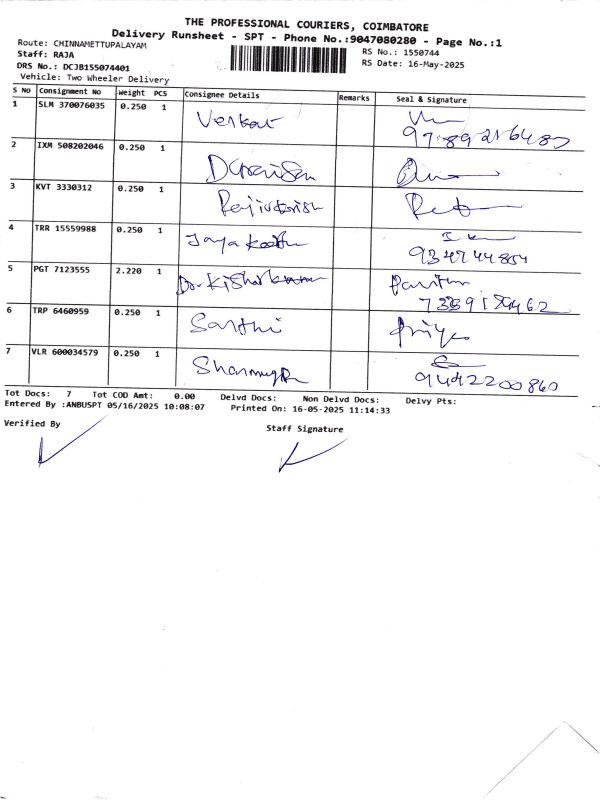 THE PROFESSIONAL COURIERS, COIMBATORE
Delivery Runsheet - SPT - Phone No.:9047080280 - Page No.:1
Route: CHINNAMETTUPALAYAM
Staff: RAJA
DRS No.: DCJB155074401
Vehicle: Two Wheeler Delivery
RS No.: 1550744
RS Date: 16-May-2025
S No Consignment No Weight PCS Consignee Details Remarks Seal & Signature
1 SLM 370076035 0.250 1 Venkat
2 IXM 508202046 0.250 1
3 KVT 3330312 0.250 1
4 TRR 15559988 0.250 1 Jaya
5 PGT 7123555 2.220 1 Dr.
6 TRP 6460959 0.250 1 Santhi Priya
7 VLR 600034579 0.250 1
9442200860
Tot Docs: 7 Tot COD Amt: 0.00 Delvd Docs: Non Delvd Docs: Delvy Pts:
Entered By :ANBUSPT 05/16/2025 10:08:07 Printed On: 16-05-2025 11:14:33
Verified By
Staff Signature